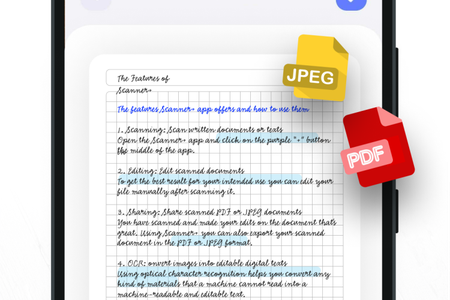 The Features of
Scanner+
The features Scanner+ app offers and how to use them
1. Scanning: Scan written documents or texts
Open the Scanner+ app and click on the purple "+" button
the middle of the app.
2. Editing: Edit scanned documents
To get the best result for your intended use you can edit your
file manually after scanning it.
3. Sharing: Share scanned PDF or JPEG documents
You have scanned and made your edits on the document that's
great. Using Scanner+ you can also export your scanned
document in the PDF or JPEG format.
4. OCR: onvert images into editable digital texts
Using optical character recognition helps you convert any
kind of materials that a machine cannot read into a
machine-readable and editable text.
JPEG
PDF